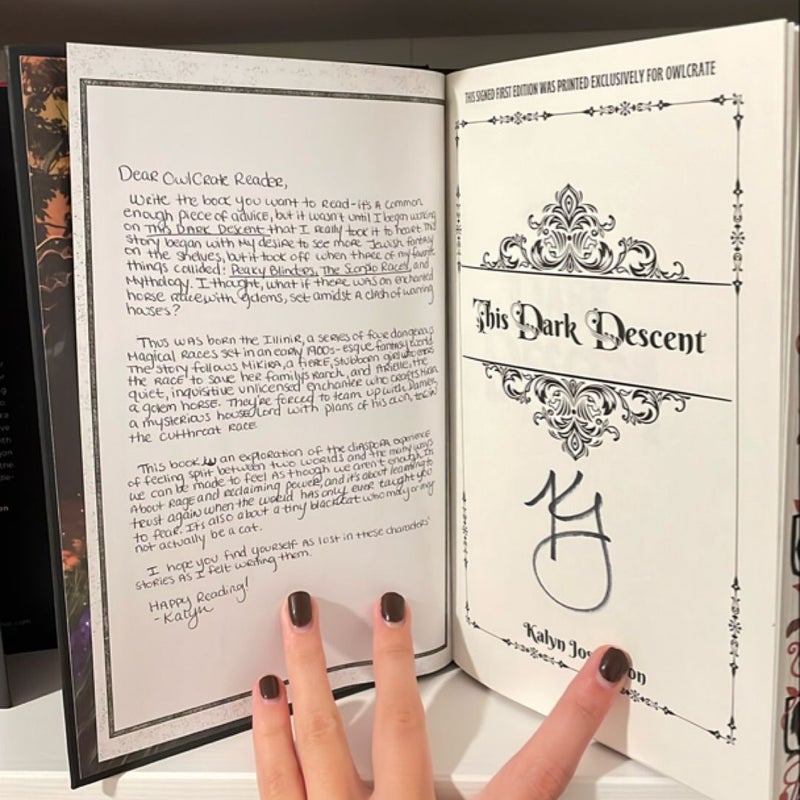 Dear OwlCrate Reader,
Write the book you want to read-it's a common
enough piece of advice, but it wasn't until I began working
on This Dark Descent that I really took it to heart. This
story began with my desire to see more Jewish fantasy
on the shelves, but it took off when three of my favorite
things collided: Peaky Blinders, The Scorpio Races, and
Mythology. I thought, what if there was an enchanted
horse race with golems, set amidst a clash of warring
houses?
Thus was born the Illinir, a series of four dangerous
magical races set in an early 1900s-esque fantasy world.
The story follows Mikira, a fierce, stubborn girl who enters
the race to save her family's ranch, and Arielle, the
quiet, inquisitive unlicensed enchanter who crafts her
a golem horse. They're forced to team up with Damien,
a mysterious house lord with plans of his own, to win
the cutthroat race.
This book is an exploration of the diaspora experience
of feeling split between two worlds and the many ways
we can be made to feel as though we aren't enough. It's
about rage and reclaiming power, and it's about learning to
trust again when the world has only ever taught you
to fear. It's also about a tiny black cat who may or may
not actually be a cat.
I hope you find yourself as lost in these characters'
stories as I felt writing them.
Happy Reading!
-Kalyn
THIS SIGNED FIRST EDITION WAS PRINTED EXCLUSIVELY FOR OWLCRATE
This Dark Descent
KJ
Kalyn